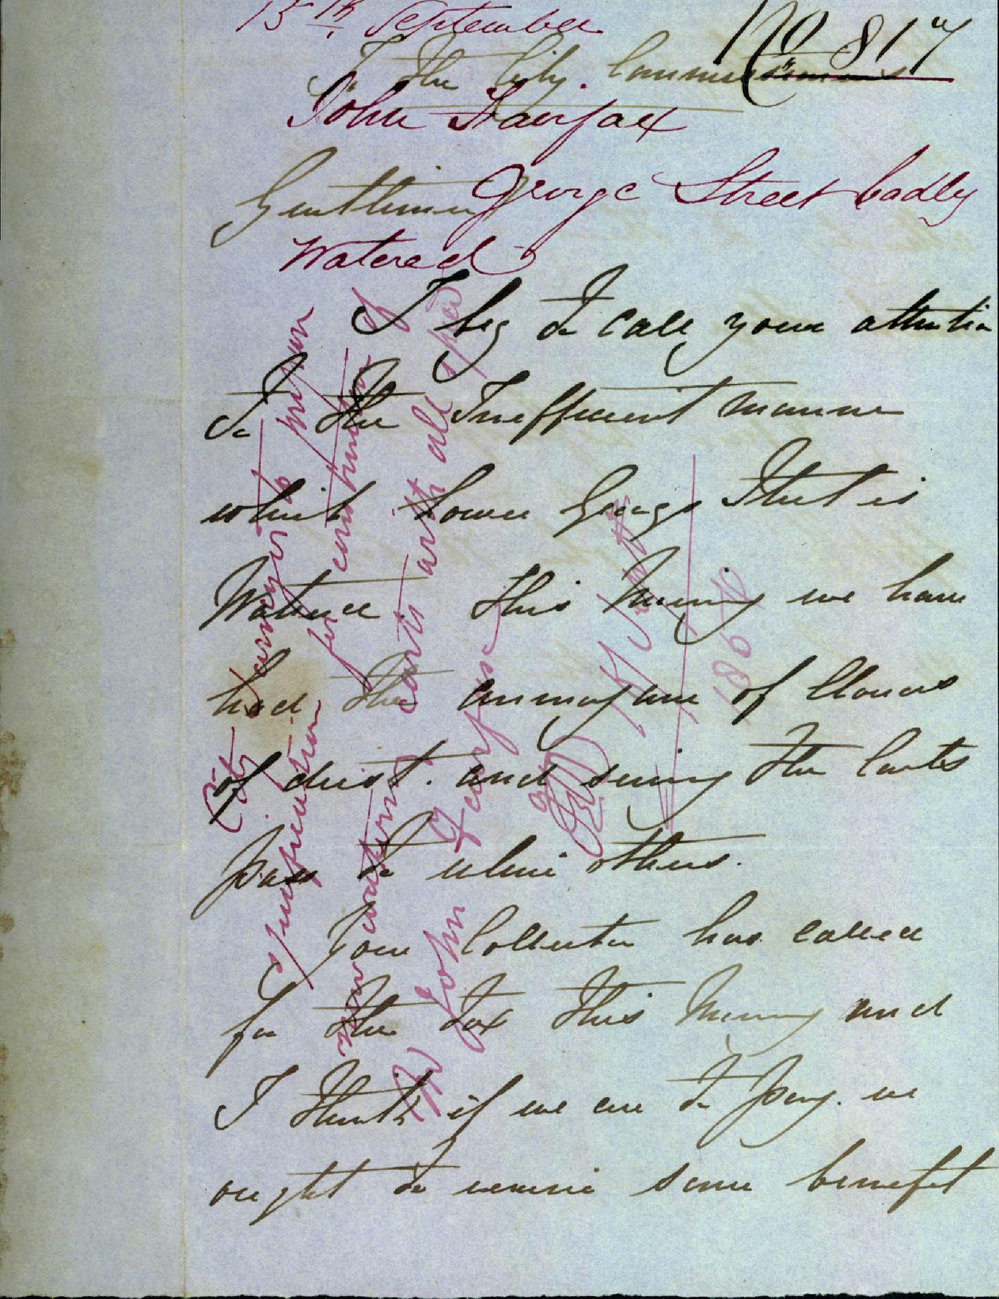 15th September
No 817
To the City Commissioners
John Fairfax
Gentlemen
George Street badly
Watered
I beg to call your attention
to the Inefficient manner
which Lower George Street is
Watered This Morning we have
had the annoyance of Clouds
of dust. and seeing the Carts
pass to relieve others.
Your Collector has called
for the Tax This Morning and
I think if we are to pay. we
ought to receive some benefit
City to prepare
specification for construction of
new water carts with all speed
Mr John Fairfax
15/Sept
1854